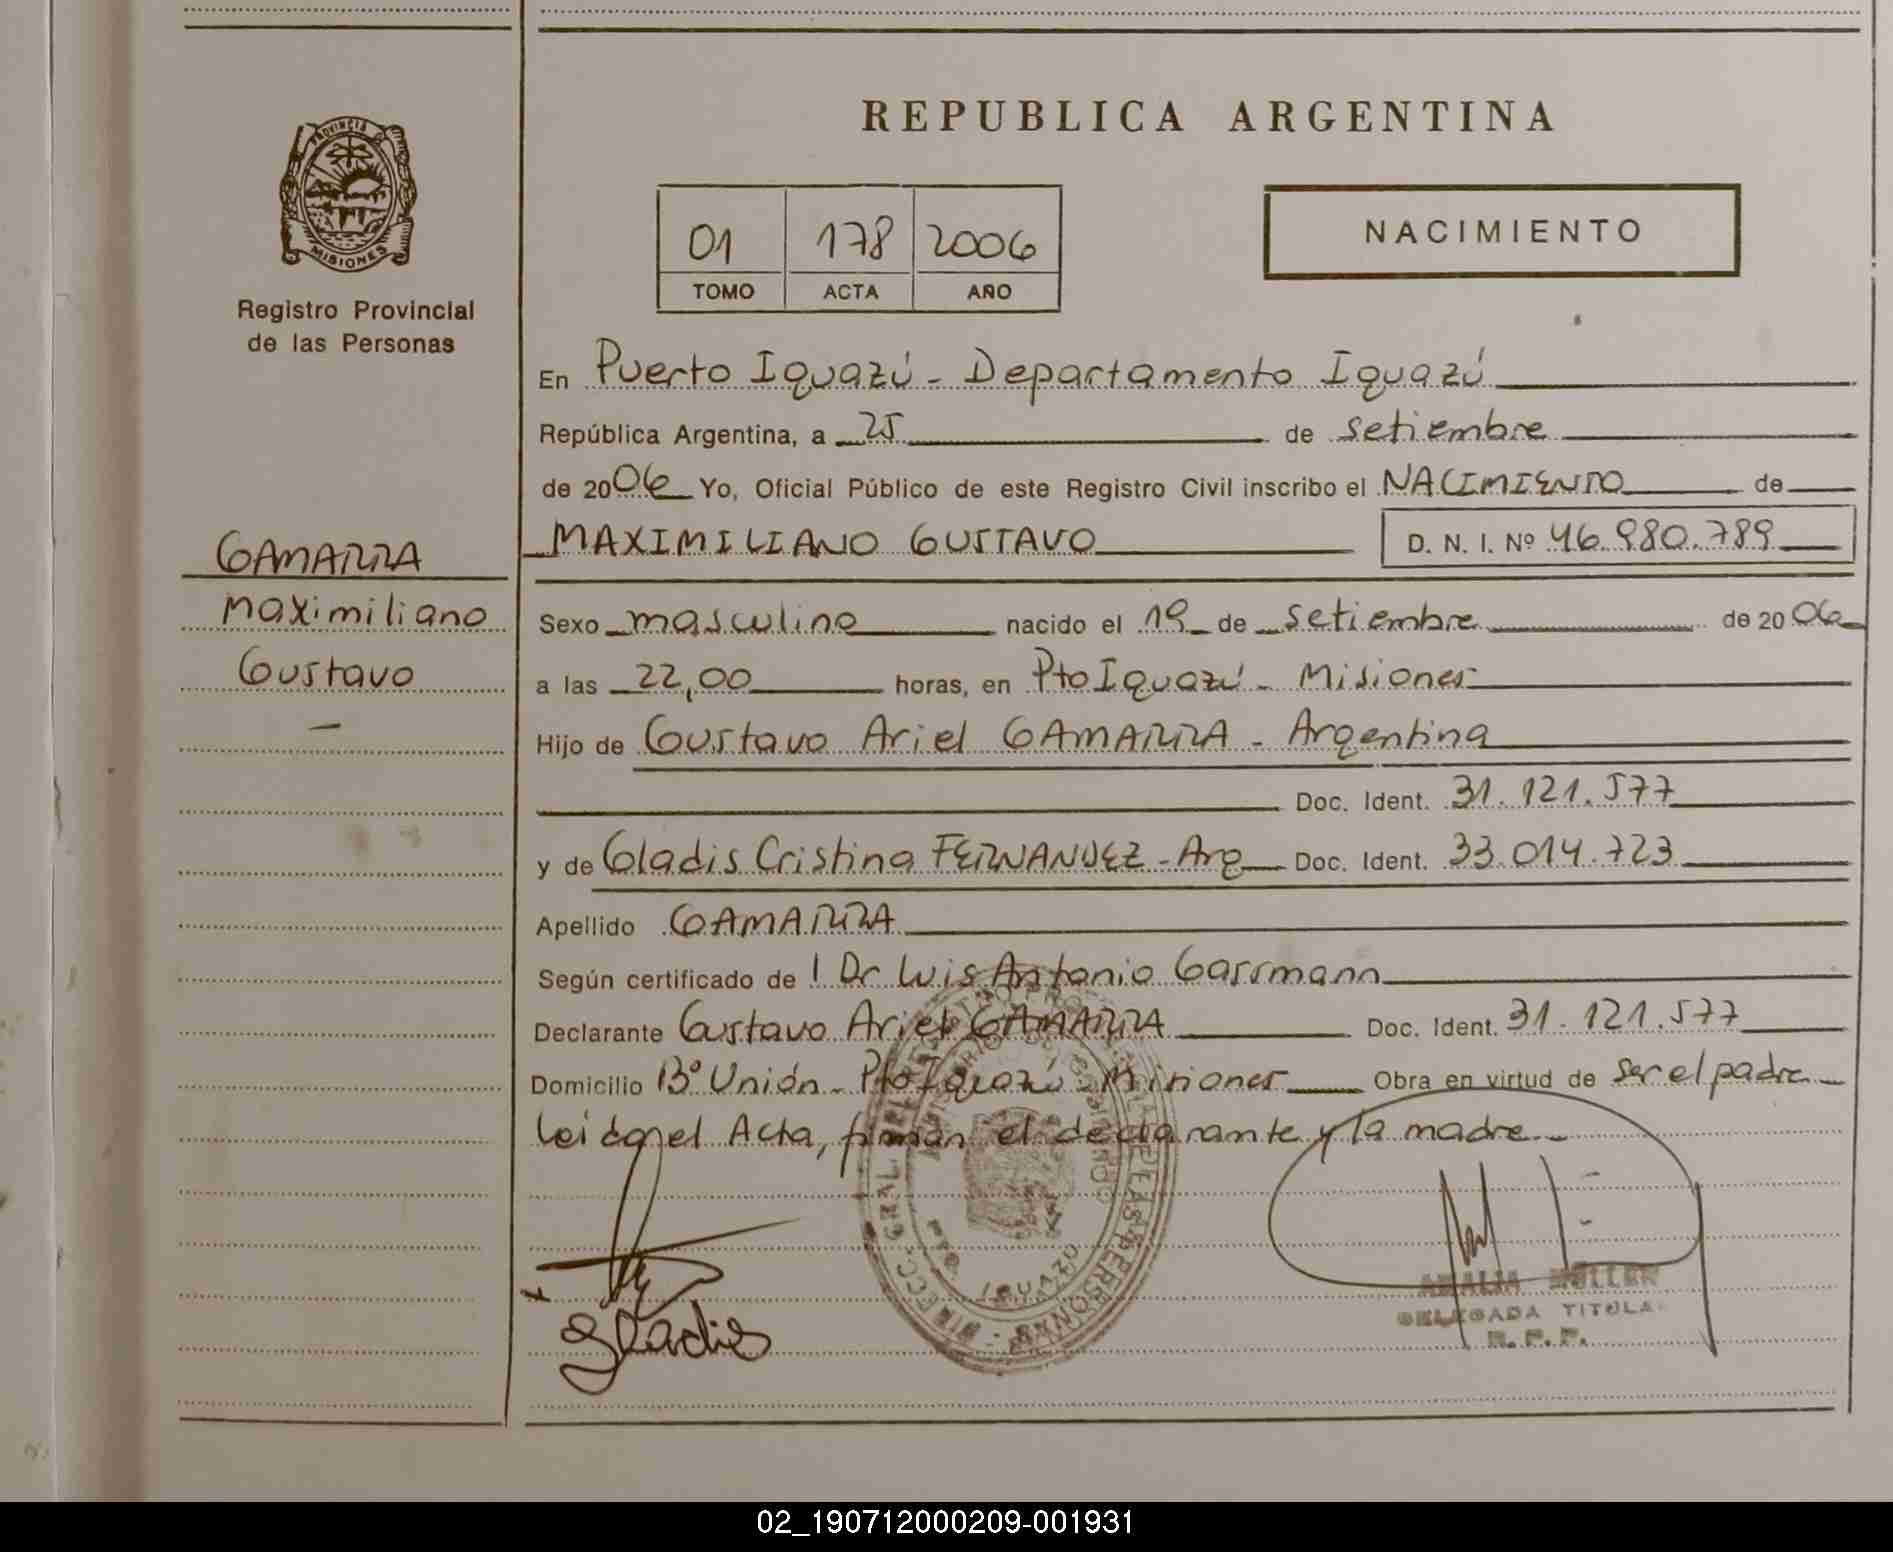 REPUBLICA ARGENTINA
PROVINCIA
MISIONES
Registro Provincial
de las Personas
01 178 2006
TOMO ACTA AÑO
NACIMIENTO
En Puerto Iguazú - Departamento Iguazú
República Argentina, a 25 de setiembre
de 2006 Yo, Oficial Público de este Registro Civil inscribo el NACIMIENTO de
GAMARRA
MAXIMILIANO GUSTAVO D. N. I. Nº 46.980.789
Maximiliano
Sexo masculino nacido el 19 de setiembre de 2006
Gustavo
a las 22,00 horas, en Pto Iguazú - Misiones
Hijo de Gustavo Ariel GAMARRA - Argentina
Doc. Ident. 31.121.577
y de Gladis Cristina FERNANDEZ - Arg Doc. Ident. 33.014.723
Apellido GAMARRA
Según certificado de l Dr Luis Antonio Gassmann
Declarante Gustavo Ariel GAMARRA Doc. Ident. 31.121.577
Domicilio Bº Unión - Pto Iguazú - Misiones Obra en virtud de ser el padre
Leída el Acta, firman el declarante y la madre
Gladis
IGUAZU
PERSONAS
AMALIA MULLER
DELEGADA TITULAR
R. P. P.
02_190712000209-001931